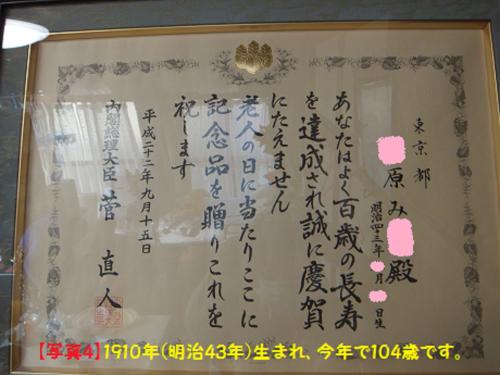 東京都
原み 殿
明治四十三年 月 日生
あなたはよく百歳の長寿
を達成され誠に慶賀
にたえません
老人の日に当たりここに
記念品を贈りこれを
祝します
平成二十二年九月十五日
内閣総理大臣 菅 直人
【写真4】1910年(明治43年)生まれ、今年で104歳です。